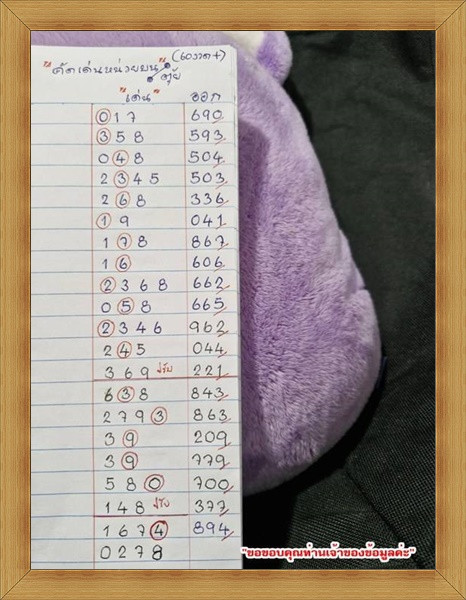 (60งวด+)
"คัดเด่นหน่วยบน"
ตุ๊ย
"เด่น" ออก
017 690
358 593
048 504
2345 503
268 336
19 041
178 867
16 606
2368 662
058 665
2346 962
245 044
369 ปรับ 221
638 843
2793 863
39 209
39 779
580 700
148 ปรับ 377
1674 894
0278
"ขอขอบคุณท่านเจ้าของข้อมูลค่ะ"